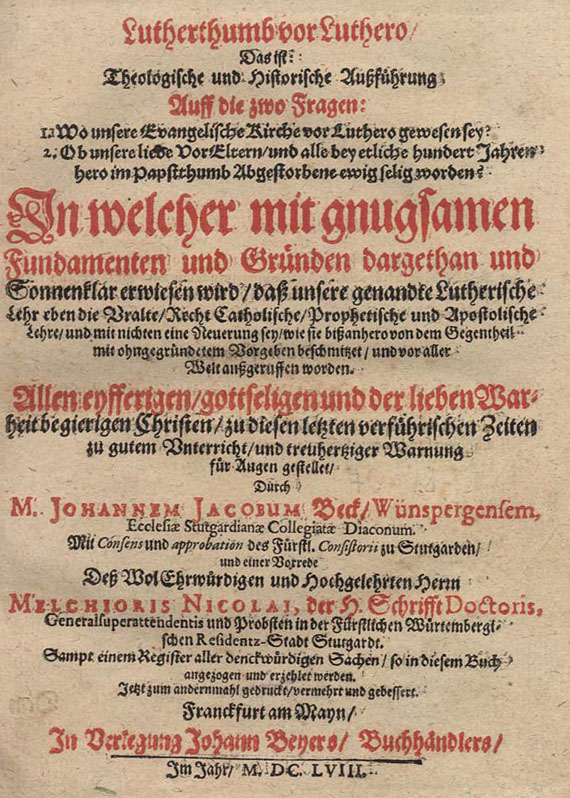 Lutherthumb vor Luthero/
Das ist:
Theologische und Historische Außführung
Auff die zwo Fragen:
1. Wo unsere Evangelische Kirche vor Luthero gewesen sey?
2. Ob unsere liebe VorEltern/und alle bey etliche hundert Jahren
hero im Papstthumb Abgestorbene ewig selig worden?
In welcher mit gnugsamen
Fundamenten und Gründen dargethan und
Sonnenklar erwiesen wird/daß unsere genandte Lutherische
Lehr eben die Uralte/Recht Catholische/Prophetische und Apostolische
Lehre/und mit nichten eine Neuerung sey/wie sie bißanhero von dem Gegentheil
mit ohngegründetem Vorgeben beschmitzet/und vor aller
Welt außgeruffen worden.
Allen eyfferigen/gottseligen und der lieben War-
heit begierigen Christen/zu diesen letzten verführischen Zeiten
zu gutem Unterricht/und treuhertziger Warnung
für Augen gestellet/
Durch
M. JOHANNEM JACOBUM Beck/Wünspergensem,
Ecclesiæ Stutgardianæ Collegiatæ Diaconum.
Mit Consens und approbation des Fürstl. Consistorii zu Stutgarden/
und einer Vorrede
Deß WolEhrwürdigen und Hochgelehrten Herrn
MELCHIORIS NICOLAI, der H. Schrifft Doctoris,
Generalsuperattendentis und Probsten in der Fürstlichen Würtembergi-
schen Residentz-Stadt Stutgardt.
Sampt einem Register aller denckwürdigen Sachen/so in diesem Buch
angezogen und erzehlet werden.
Jetzt zum andernmahl gedruckt/vermehrt und gebessert.
Franckfurt am Mayn/
In Verlegung Johann Beyers/Buchhändlers/
Im Jahr/M. DC. LVIII.